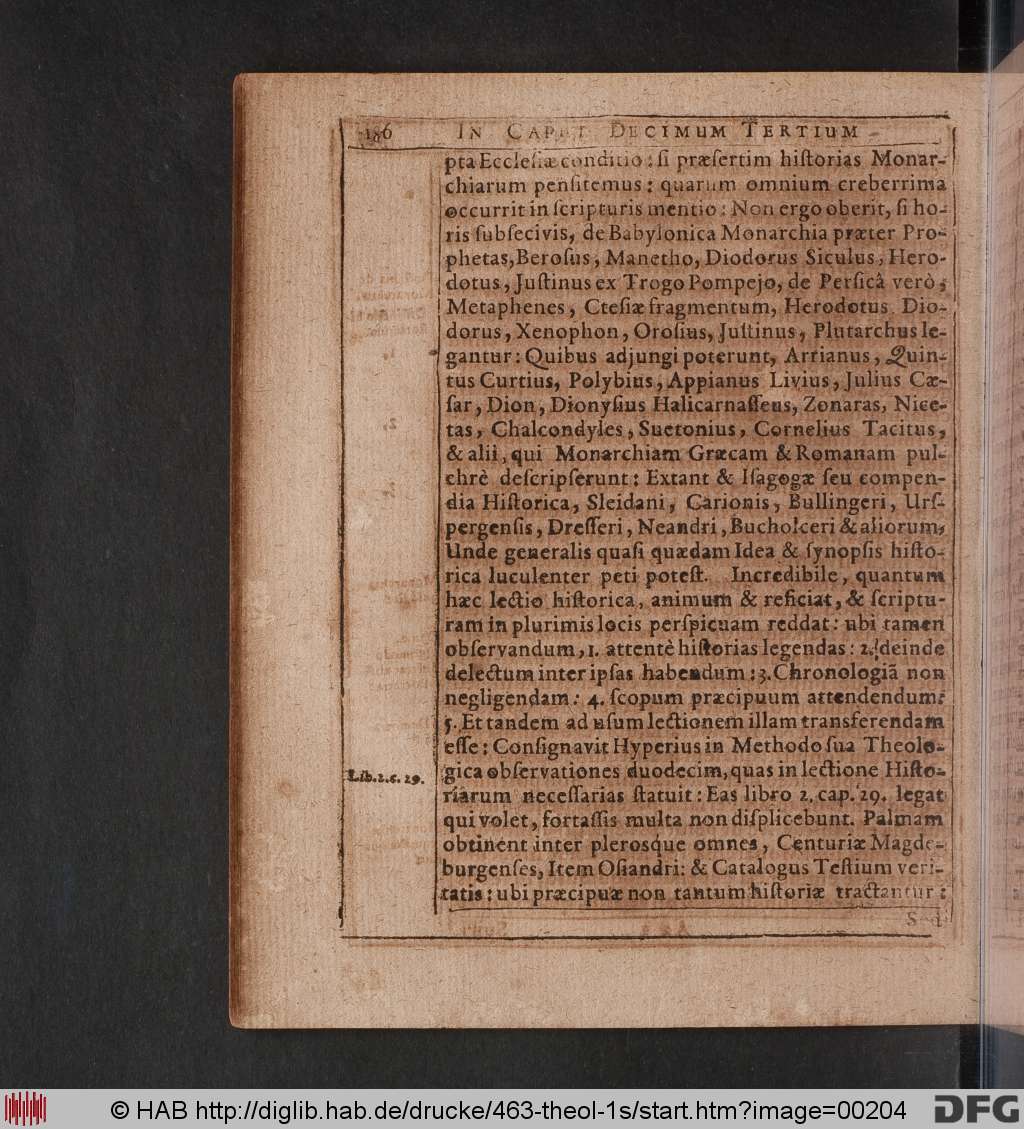 186 IN CAPUT DECIMUM TERTIUM
pta Ecclesiæ conditio: si præsertim historias Monar-
chiarum pensitemus: quarum omnium creberrima
occurrit in scripturis mentio: Non ergo oberit, si ho-
ris subsecivis, de Babylonica Monarchia præter Pro-
phetas, Berosus, Manetho, Diodorus Siculus, Hero-
dotus, Justinus ex Trogo Pompejo, de Persicâ verò,
Metaphenes, Ctesiæ fragmentum, Herodotus, Dio-
dorus, Xenophon, Orosius, Justinus, Plutarchus le-
gantur: Quibus adjungi poterunt, Arrianus, Quin-
tus Curtius, Polybius, Appianus Livius, Julius Cæ-
sar, Dion, Dionysius Halicarnasseus, Zonaras, Nice-
tas, Chalcondyles, Suetonius, Cornelius Tacitus,
& alii, qui Monarchiam Græcam & Romanam pul-
chrè descripserunt: Extant & Isagogæ seu compen-
dia Historica, Sleidani, Carionis, Bullingeri, Urs-
pergensis, Dresseri, Neandri, Bucholceri & aliorum,
Unde generalis quasi quædam Idea & synopsis histo-
rica luculenter peti potest. Incredibile, quantum
hæc lectio historica, animum & reficiat, & scriptu-
ram in plurimis locis perspicuam reddat: ubi tamen
observandum, 1. attentè historias legendas: 2. deinde
delectum inter ipsas habendum: 3. Chronologiã non
negligendam: 4. scopum præcipuum attendendum:
5. Et tandem ad usum lectionem illam transferendam
esse: Consignavit Hyperius in Methodo sua Theolo-
Lib. 2. c. 29. gica observationes duodecim, quas in lectione Histo-
riarum necessarias statuit: Eas libro 2. cap. 29. legat
qui volet, fortassis multa non displicebunt. Palmam
obtinent inter plerosque omnes, Centuriæ Magde-
burgenses, Item Osiandri: & Catalogus Testium veri-
tatis: ubi præcipuæ non tantum historiæ tractantur:
Sed
© HAB http://diglib.hab.de/drucke/463-theol-1s/start.htm?image=00204 DFG